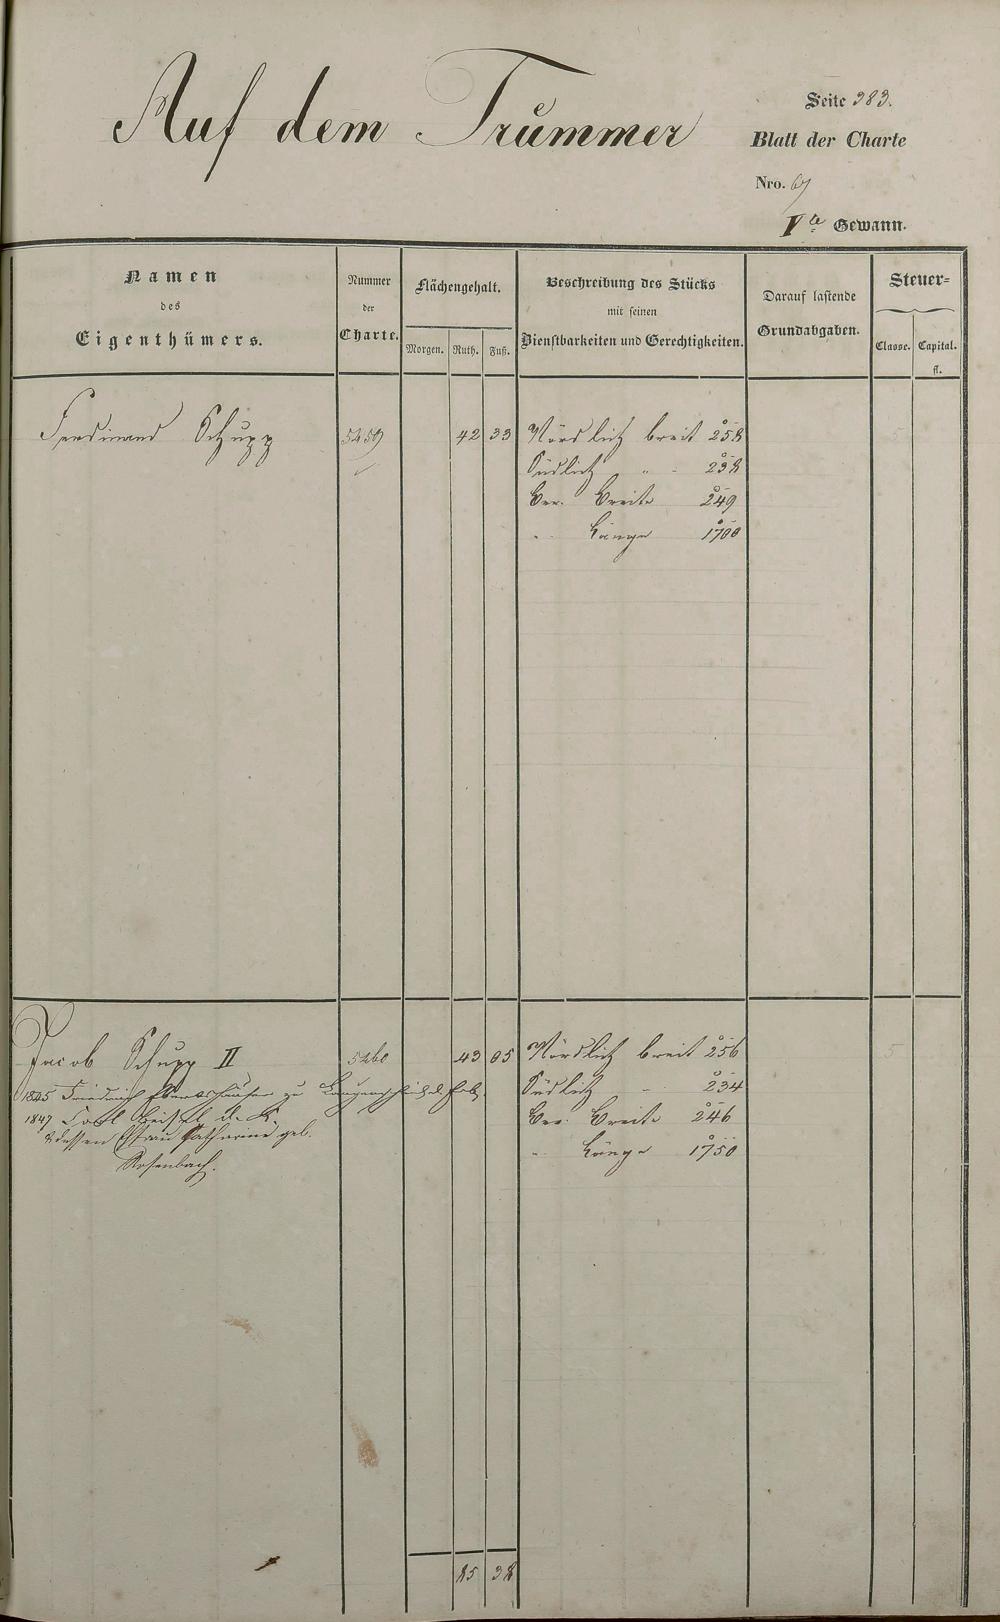 Auf dem Trümmer
Seite 383.
Blatt der Charte
Nro. 67
Vte Gewann.
Namen
des
Eigenthümers.
Nummer
der
Charte.
Flächengehalt.
Morgen. Ruth. Fuß.
Beschreibung des Stücks
mit seinen
Dienstbarkeiten und Gerechtigkeiten.
Darauf lastende
Grundabgaben.
Steuer=
Classe. Capital.
fl.
Ferdinand Schupp 5259 42 33 Nördlich breit 258
Südlich " - 238
Ver. Breite 249
" Länge 1700
Jacob Schupp II 5260 43 05 Nördlich breit 256 5
1845 Friedrich Ebertshäuser zu
Südlich - 234
1847 Carl Beisel d. K.
Ver. Breite 246
& dessen Ehefrau Catharine geb.
" Länge 1750
Rosenbach.
85 38